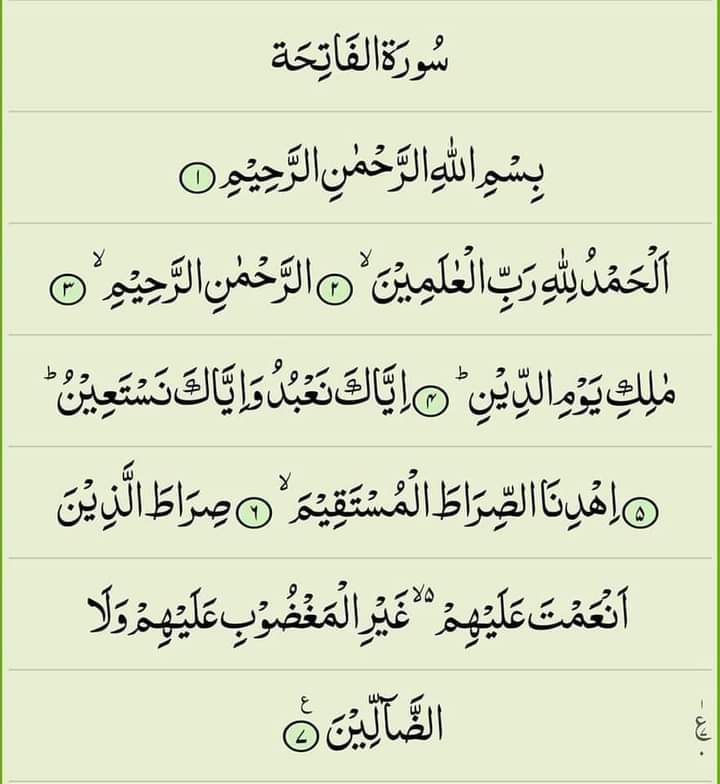 سُورَةُ الفَاتِحَة
بِسْمِ اللّٰهِ الرَّحْمٰنِ الرَّحِيْمِ ۝۱
اَلْحَمْدُ لِلّٰهِ رَبِّ الْعٰلَمِيْنَ ۙ ۝۲ الرَّحْمٰنِ الرَّحِيْمِ ۙ ۝۳
مٰلِكِ يَوْمِ الدِّيْنِ ؕ ۝۴ اِيَّاكَ نَعْبُدُ وَاِيَّاكَ نَسْتَعِيْنُ ؕ
۝۵ اِهْدِنَا الصِّرَاطَ الْمُسْتَقِيْمَ ۙ ۝۶ صِرَاطَ الَّذِيْنَ
اَنْعَمْتَ عَلَيْهِمْ ۙ۵ غَيْرِ الْمَغْضُوْبِ عَلَيْهِمْ وَلَا
الضَّآلِّيْنَ ۝۷ ع